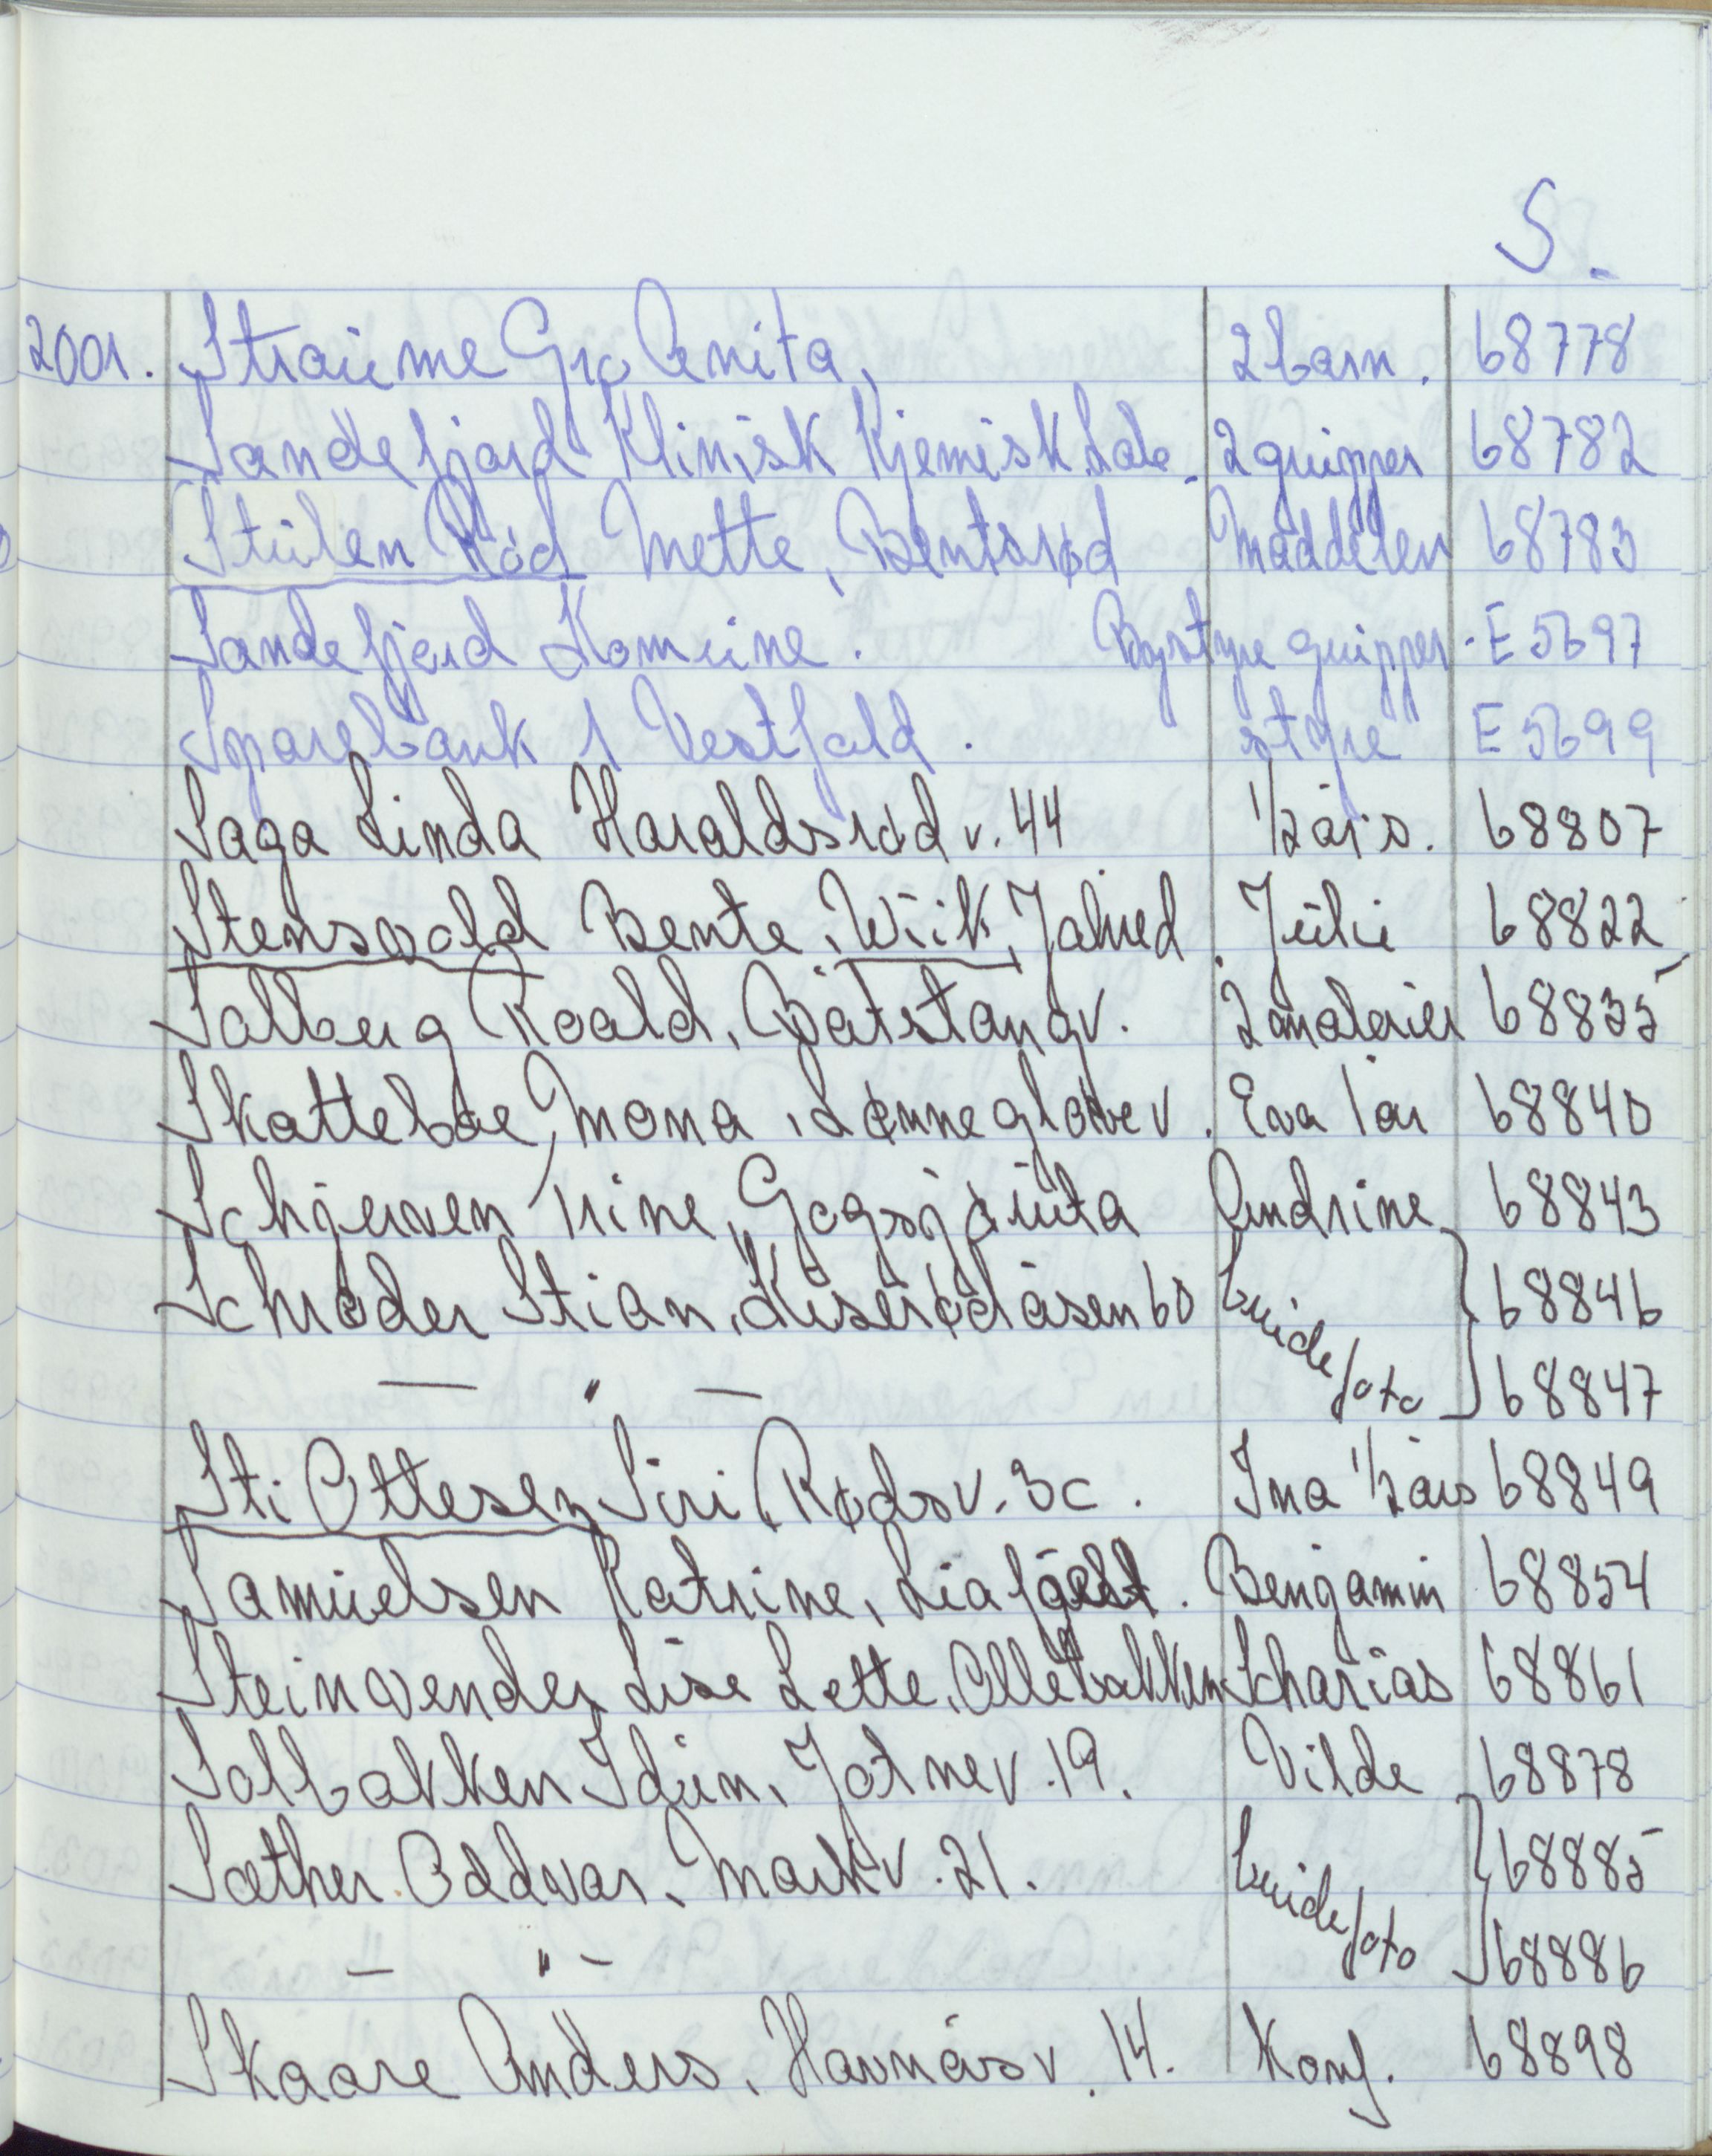 S.
2001. Straume Gro Anita, 2 barn. 68778
Sandefjord Klinisk Kjemisk Lab. 2 grupper 68782
Stulen Rød Mette, Bentsrød Maddelen 68783
Sandefjord Komune. Bystyre grupper. E 5697
Sparebank 1 Vestfold. styre E 5699
Saga Linda Haraldsrød v. 44 1/2 års. 68807
Stensvold Bente, Wiik, Jahred. Julie 68822
Solberg Roald, Båtstangv. 2 malerier 68835
Skatteboe, Mona, Lønnegløvev. Eva 1 år 68840
Schjerven Trine, Gogsjøruta Andrine 68843
Schrøder Stian, Krserødåsen 60 brude 68846
— " — foto 68847
Sti Ottesen Siri, Rødsv. 3c. Ina 1/2 års 68849
Samuelsen Katrine, Benjamin 68854
Steinvender Lise Lotte, Ollebakken Scharias 68861
Solbakken Idun, Jotnev. 19. Vilde 68878
Sæther Oddvar, Markv. 21. brude 68885
— " - foto 68886
Skaare Anders, Havnåsv. 14. Konf. 68898